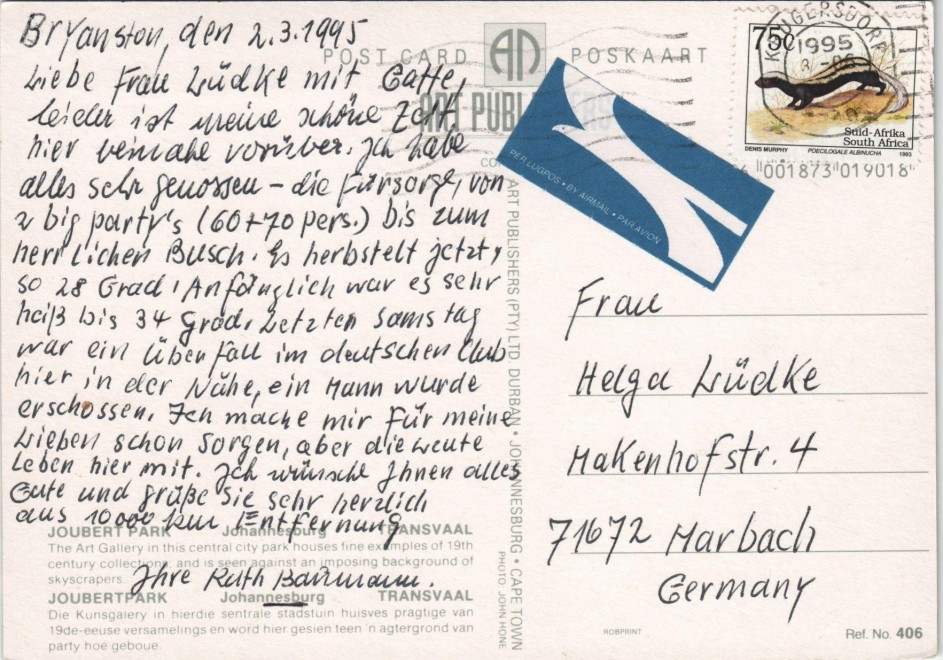 Bryanston, den 2.3.1995
Liebe Frau Lüdke mit Gatte,
leider ist meine schöne Zeit
hier beinahe vorüber. Ich habe
alles sehr genossen – die Fürsorge, von
2 big party's (60+70 pers.) bis zum
herrlichen Busch. Es herbstelt jetzt,
so 28 Grad, Anfänglich war es sehr
heiß bis 34 Grad. Letzten Samstag
war ein Überfall im deutschen Club
hier in der Nähe, ein Mann wurde
erschossen. Ich mache mir für meine
Lieben schon Sorgen, aber die Leute
leben hier mit. Ich wünsche Ihnen alles
Gute und grüße Sie sehr herzlich
aus 10000 km Entfernung
Ihre Ruth
JOUBERT PARK Johannesburg TRANSVAAL
The Art Gallery in this central city park houses fine examples of 19th
century collections and is seen against an imposing background of
skyscrapers.
JOUBERTPARK Johannesburg TRANSVAAL
Die Kunsgalery in hierdie sentrale stadstuin huisves pragtige van
19de-eeuse versamelings en word hier gesien teen 'n agtergrond van
party hoe geboue.
POST CARD AP POSKAART
ART PUBLISHERS
ART PUBLISHERS (PTY) LTD. DURBAN • JOHANNESBURG • CAPE TOWN
PHOTO: JOHN HONE
PER LUGPOS • BY AIRMAIL • PAR AVION
KRUGERSDORP
1995
75c
Suid-Afrika
South Africa
DENIS MURPHY POECILOGALE ALBINUCHA 1993
001873 019018
Frau
Helga Lüdke
Makenhofstr. 4
71672 Marbach
Germany
ROBPRINT
Ref. No. 406